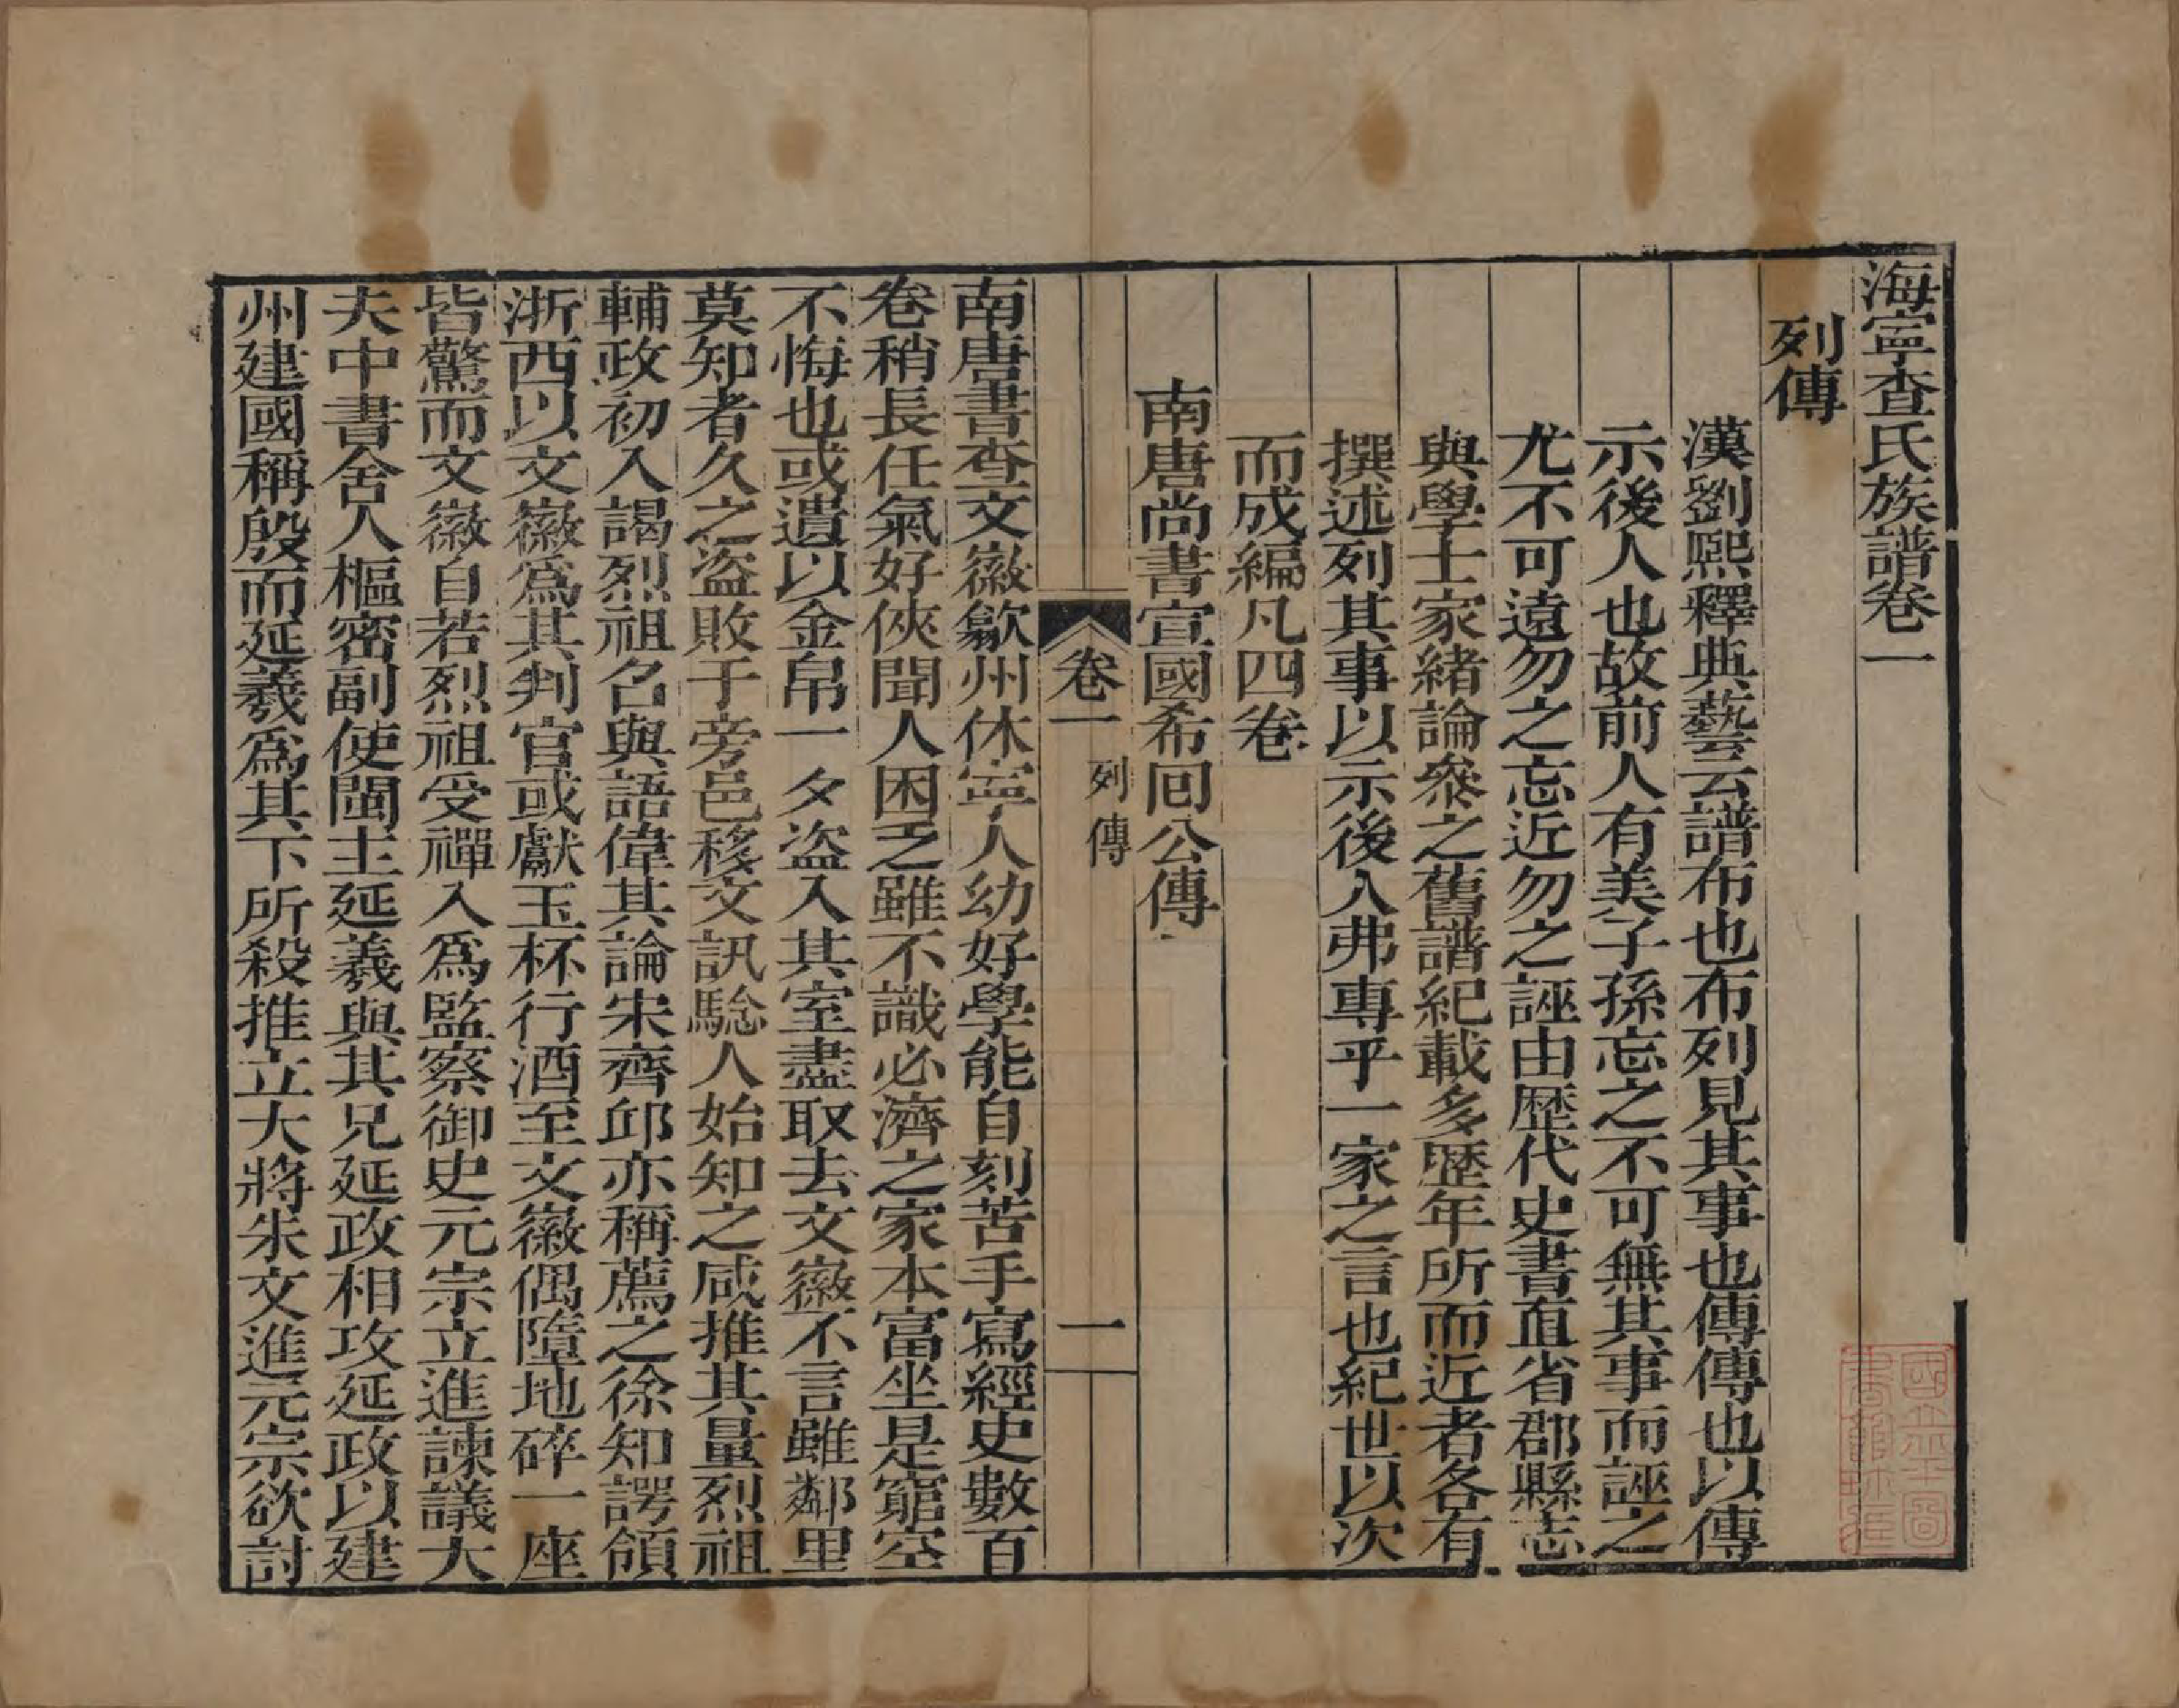 海寧查氏族譜卷一
列傳
漢劉熙釋典藝云譜布也布列見其事也傳傳也以傳
示後人也故前人有美子孫忘之不可無其事而誣之
尤不可遠勿之忘近勿之誣由歷代史書直省郡縣志
與學士家緒論參之舊譜紀載多歷年所而近者各有
撰述列其事以示後人弗專乎一家之言也紀世以次
而成編凡四卷
南唐尚書宣國希回公傳
卷一 列傳 一
南唐書查文徽歙州休寧人幼好學能自刻苦手寫經史數百
卷稍長任氣好俠聞人困乏雖不識必濟之家本富坐是窮空
不悔也或遺以金帛一夕盜入其室盡取去文徽不言雖鄰里
莫知者久之盜敗于旁邑移文訊驗人始知之咸推其量烈祖
輔政初入謁烈祖名與語偉其論宋齊邱亦稱薦之徐知諤領
浙西以文徽爲其判官或獻玉杯行酒至文徽偶墮地碎一座
皆驚而文徽自若烈祖受禪入爲監察御史元宗立進諫議大
夫中書舍人樞密副使閩主延羲與其兄延政相攻延政以建
州建國稱殷而延羲爲其下所殺推立大將朱文進元宗欲討